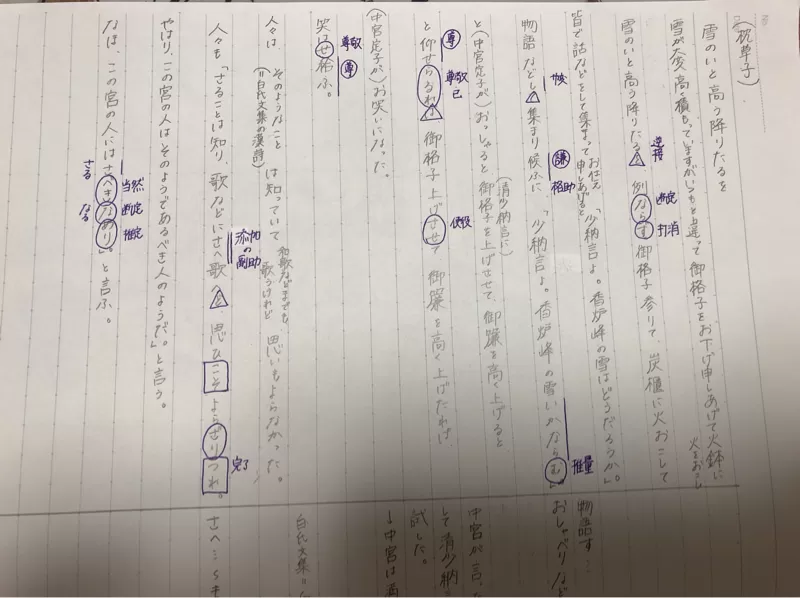 (枕草子)
雪のいと高う降りたるを
雪が大変高く積もっていますがいつもと違って御格子をお下げ申しあげて火鉢に
火をおこし
雪のいと高う降りたる 例ならず 御格子参りて、炭櫃に火おこして
逆接
断定
打消
皆で話などをして集まってお仕え申しあげると「少納言よ。香炉峰の雪はどうだろうか。」
物語などし 集まり候ふに 「少納言よ。香炉峰の雪いかならむ。」
謙
格助
推量
と(中宮定子が)おっしゃると(清少納言に)御格子を上げさせて、御簾を高く上げると
と仰せらるれば 御格子上げさせて 御簾を高く上げたれば
尊
尊敬
已
使役
(中宮定子が)お笑いになった。
笑はせ給ふ。
尊敬
尊
人々は そのようなこと(=白氏文集の漢詩)は知っていて 和歌などまでも、歌うけれど 思いもよらなかった。
人々も「さることは知り、歌などにさへ歌へど、思ひこそよらざりつれ。
添加の副助
完了
やはり、この宮の人はそのようであるべき人のようだ。」と言う。
なほ、この宮の人にはさべきなめり。」と言ふ。
さる
なる
当然
断定
推定
物語す…
おしゃべりなど
中宮が言った
して清少納
試した。
↓中宮は満
白氏文集=
さへ…〜も